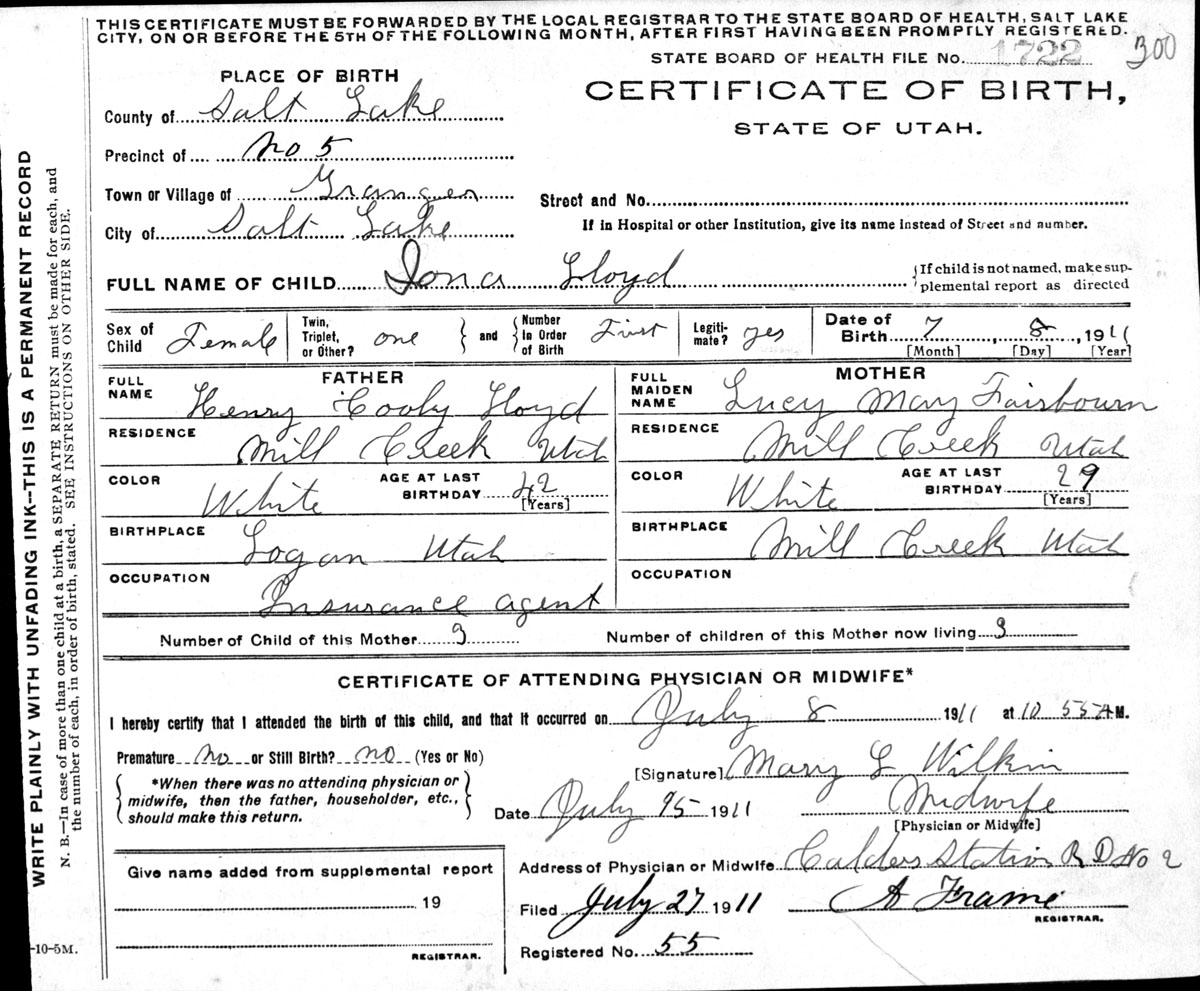 THIS CERTIFICATE MUST BE FORWARDED BY THE LOCAL REGISTRAR TO THE STATE BOARD OF HEALTH, SALT LAKE
CITY, ON OR BEFORE THE 5TH OF THE FOLLOWING MONTH, AFTER FIRST HAVING BEEN PROMPTLY REGISTERED.
STATE BOARD OF HEALTH FILE No. 1722 300
PLACE OF BIRTH
CERTIFICATE OF BIRTH,
STATE OF UTAH.
County of Salt Lake
Precinct of No 5
Town or Village of Granger
Street and No.
City of Salt Lake
If in Hospital or other Institution, give its name instead of Street and number.
FULL NAME OF CHILD Iona Lloyd
If child is not named, make sup-
plemental report as directed
Sex of Child Female
Twin, Triplet, or Other? one
and Number In Order of Birth First
Legiti-mate? yes
Date of Birth 7, 8, 1911
[Month] [Day] [Year]
FATHER
FULL NAME Henry Cooly Lloyd
RESIDENCE Mill Creek Utah
COLOR White
AGE AT LAST BIRTHDAY 42
[Years]
BIRTHPLACE Logan Utah
OCCUPATION Insurance agent
MOTHER
FULL MAIDEN NAME Lucy May Fairbourn
RESIDENCE Mill Creek Utah
COLOR White
AGE AT LAST BIRTHDAY 29
[Years]
BIRTHPLACE Mill Creek Utah
OCCUPATION
Number of Child of this Mother 3 Number of children of this Mother now living 3
CERTIFICATE OF ATTENDING PHYSICIAN OR MIDWIFE*
I hereby certify that I attended the birth of this child, and that it occurred on July 8 1911 at 10 55 A M.
Premature No or Still Birth? no (Yes or No)
[Signature] Mary L Wilkin
*When there was no attending physician or
midwife, then the father, householder, etc.,
should make this return.
Date July 1911 Midwife
[Physician or Midwife]
Address of Physician or Midwife Calders Station R D No 2
Give name added from supplemental report
19
REGISTRAR.
Filed July 27 1911 A Frame
REGISTRAR.
Registered No. 55
-10-5M.
WRITE PLAINLY WITH UNFADING INK--THIS IS A PERMANENT RECORD
N. B.—In case of more than one child at a birth, a SEPARATE RETURN must be made for each, and
the number of each, in order of birth, stated. SEE INSTRUCTIONS ON OTHER SIDE.